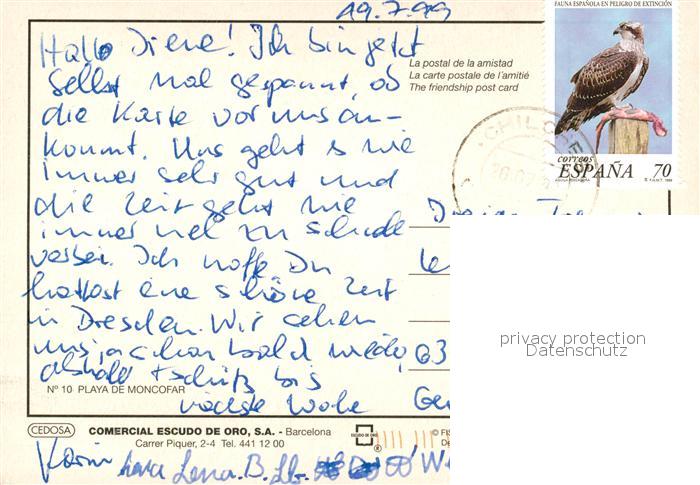 19.7.99
Hallo Diene! Ich bin jetzt
selbst mal gespannt, ob
die Karte vor uns an-
kommt. Uns geht s wie
immer sehr gut und
die Zeit geht wie
immer viel zu schnell
vorbei. Ich hoffe Du
hattest eine schöne Zeit
in Dresden. Wir sehen
uns ja schon bald wieder,
deshalb tschüß bis
nächste Woche
Karin Lena. B.
FAUNA ESPAÑOLA EN PELIGRO DE EXTINCIÓN
correos
ESPAÑA 70
La postal de la amistad
La carte postale de l'amitié
The friendship post card
63
privacy protection
Datenschutz
Nº 10 PLAYA DE MONCOFAR
CEDOSA
COMERCIAL ESCUDO DE ORO, S.A. - Barcelona
Carrer Piquer, 2-4 Tel. 441 12 00
ESCUDO DE ORO
© FIS
De